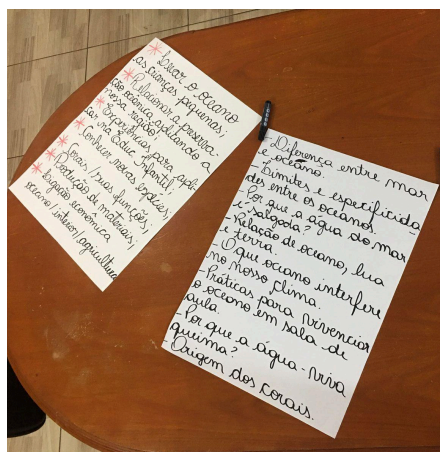 * Levar o oceano
as crianças pequenas;
* Relacionar a preserva-
ção oceânica aplicando a
nossa região;
* Experiências para apli-
car na aula infantil;
* Conhecer novas espécies.
* Corais/suas funções;
* Produção de materiais;
* ligação econômica
oceano/interior/agricultura
- Diferença entre mar
e oceano.
- Limites e especificida-
des entre os oceanos.
- Por que a água do mar
é salgada?
- Relação de oceano, lua
e terra.
- O que oceano interfere
no nosso clima.
- Práticas para vivenciar
o oceano em sala de
aula.
- Por que a água-viva
queima?
- Origem dos corais.